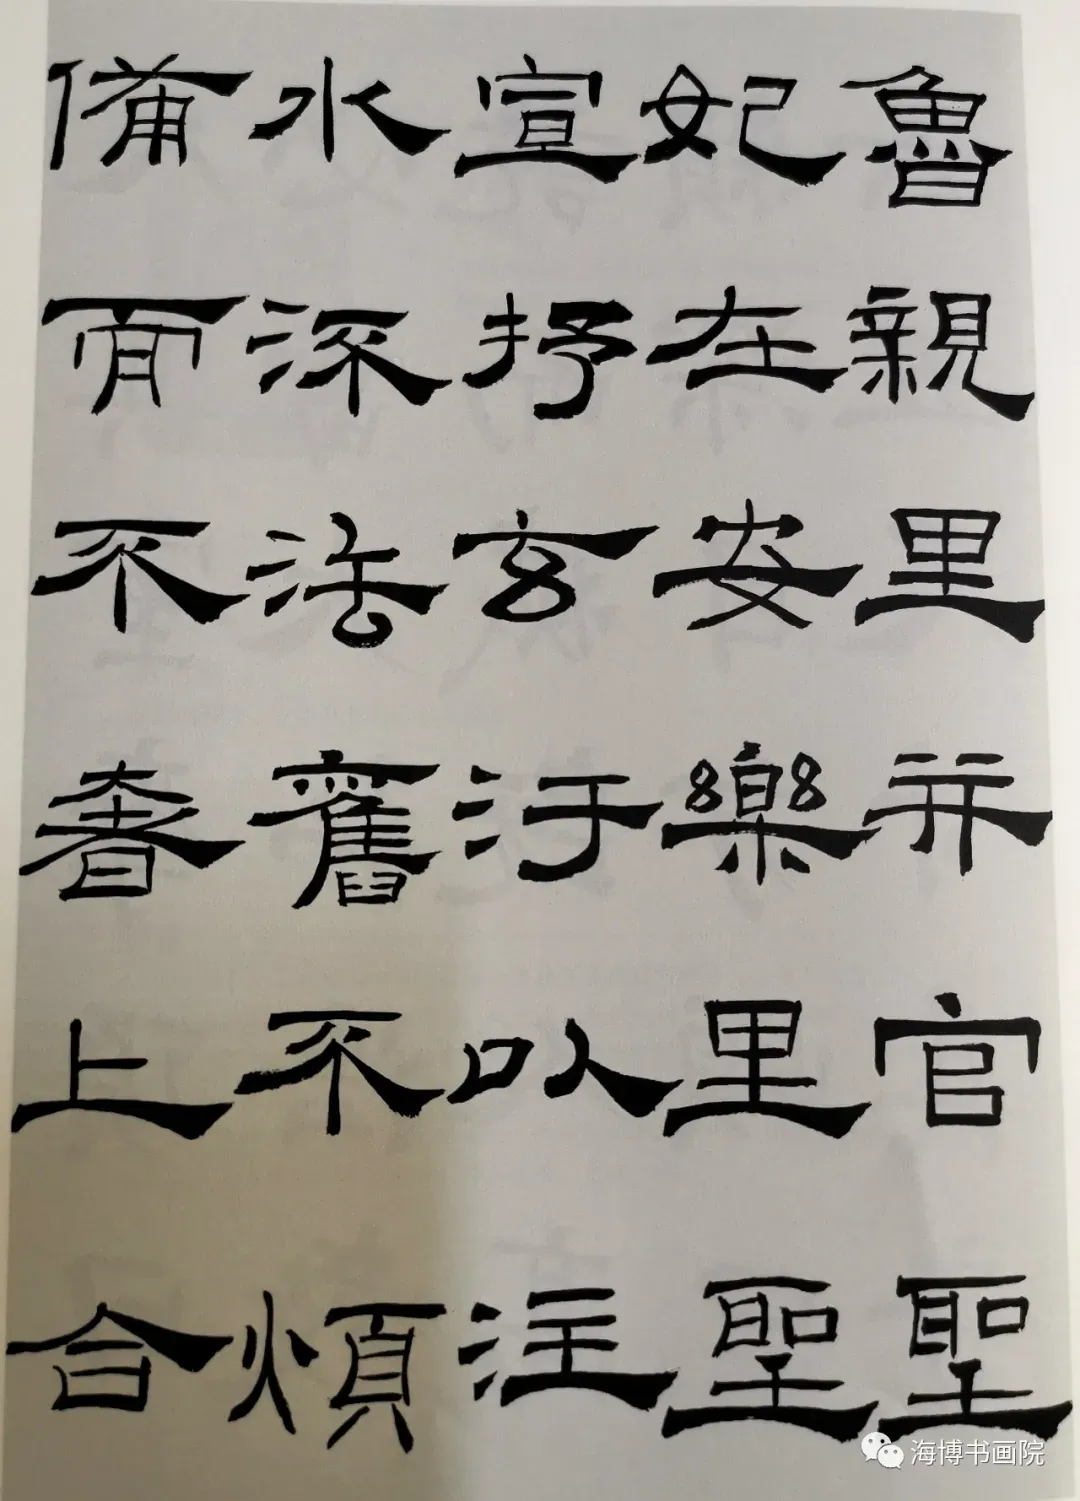 魯親里并官聖
妃在安樂里聖
宣抒玄汙以注
水流法舊不煩
備而不奢上合
海博书画院